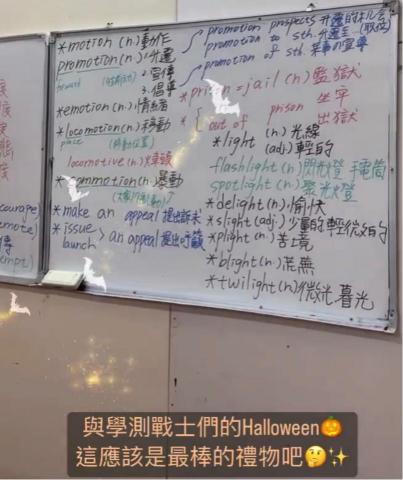 *motion (n.) 動作
promotion (n.) 1.升遷
2.宣傳
3.倡導
forward
promotion prospects 升遷的机会
promotion to sth. 升遷至
promotion of sth. 某事の宣導
*emotion (n.) 情緒
*locomotion (n.) 移動
place
locomotive (n.) 火車頭
*commotion (n.) 暴動
*make an appeal 提出訴求
*issue
launch > an appeal 提出呼籲
*prison = jail (n.) 監獄
in prison 坐牢
out of prison 出獄
*light (n.) 光線
(adj.) 輕的
flashlight (n.) 閃光燈 手電筒
spotlight (n.) 聚光燈
*delight (n.) 愉快
*slight (adj.) 少量的 輕微的
*plight (n.) 苦境
*blight (n.) 荒蕪
*twilight (n.) 微光 暮光
與學測戰士們的Halloween🎃
這應該是最棒的禮物吧🤔✨